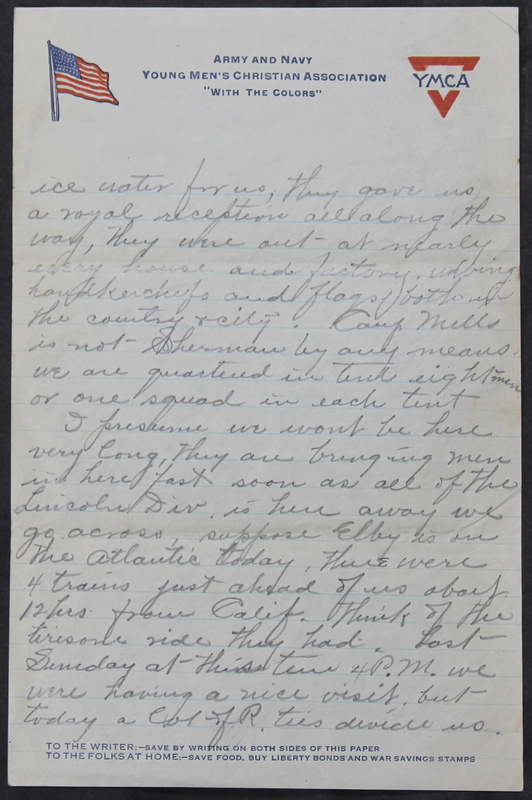 ARMY AND NAVY
YOUNG MEN'S CHRISTIAN ASSOCIATION
"WITH THE COLORS"
YMCA
ice water for us, they gave us
a royal reception all along the
way, they were out at nearly
every house and factory, waving
handkerchiefs and flags, both in
the country & city. Camp Mills
is not Sherman by any means.
we are quartered in tents eight men
or one squad in each tent
I presume we wont be here
very long, they are bringing men
in here fast soon as all of the
Lincoln Div. is here away we
go across, suppose Elby is on
the Atlantic today, there were
4 trains just ahead of us about
12 hrs from Calif. Think of the
tiresome ride they had. Last
Sunday at this time 4 P.M. we
were having a nice visit, but
today a lot of R. ties divide us.
TO THE WRITER:-SAVE BY WRITING ON BOTH SIDES OF THIS PAPER
TO THE FOLKS AT HOME:-SAVE FOOD, BUY LIBERTY BONDS AND WAR SAVINGS STAMPS